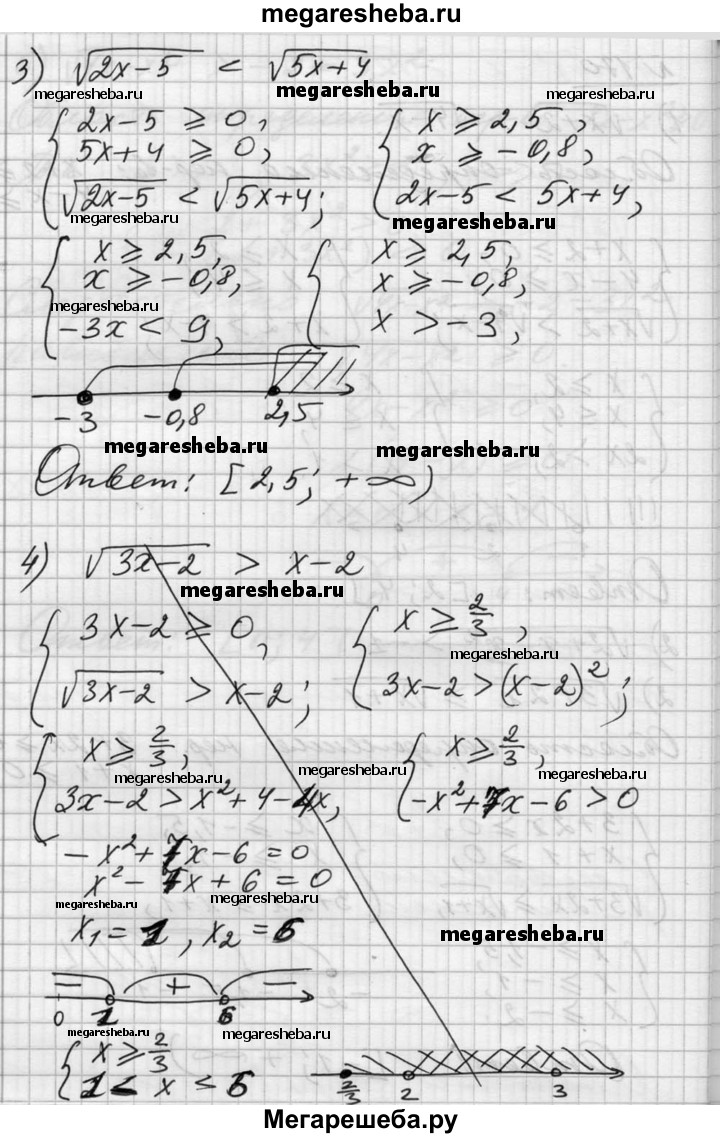 megaresheba.ru
3) √(2x-5) < √(5x+4)
megaresheba.ru megaresheba.ru megaresheba.ru
{ 2x-5 ≥ 0,
5x+4 ≥ 0,
√(2x-5) < √(5x+4);
megaresheba.ru
{ x ≥ 2,5,
x ≥ -0,8,
2x-5 < 5x+4,
megaresheba.ru
{ x ≥ 2,5,
x ≥ -0,8,
megaresheba.ru
-3x < 9,
{ x ≥ 2,5,
x ≥ -0,8,
x > -3,
-3 -0,8 2,5
megaresheba.ru megaresheba.ru
Ответ: [2,5; +∞)
4) √(3x-2) > x-2
megaresheba.ru
{ 3x-2 ≥ 0,
√(3x-2) > x-2;
{ x ≥ 2/3,
megaresheba.ru
3x-2 > (x-2)²;
{ x ≥ 2/3,
megaresheba.ru
3x-2 > x²+4-4x,
{ x ≥ 2/3,
megaresheba.ru
-x²+7x-6 > 0
-x²+7x-6=0
x²-7x+6=0
megaresheba.ru megaresheba.ru
x₁=1, x₂=6
megaresheba.ru
- + -
0 1 6
megaresheba.ru megaresheba.ru
{ x ≥ 2/3
1 < x < 6
2/3 2 3
Мегарешеба.ру